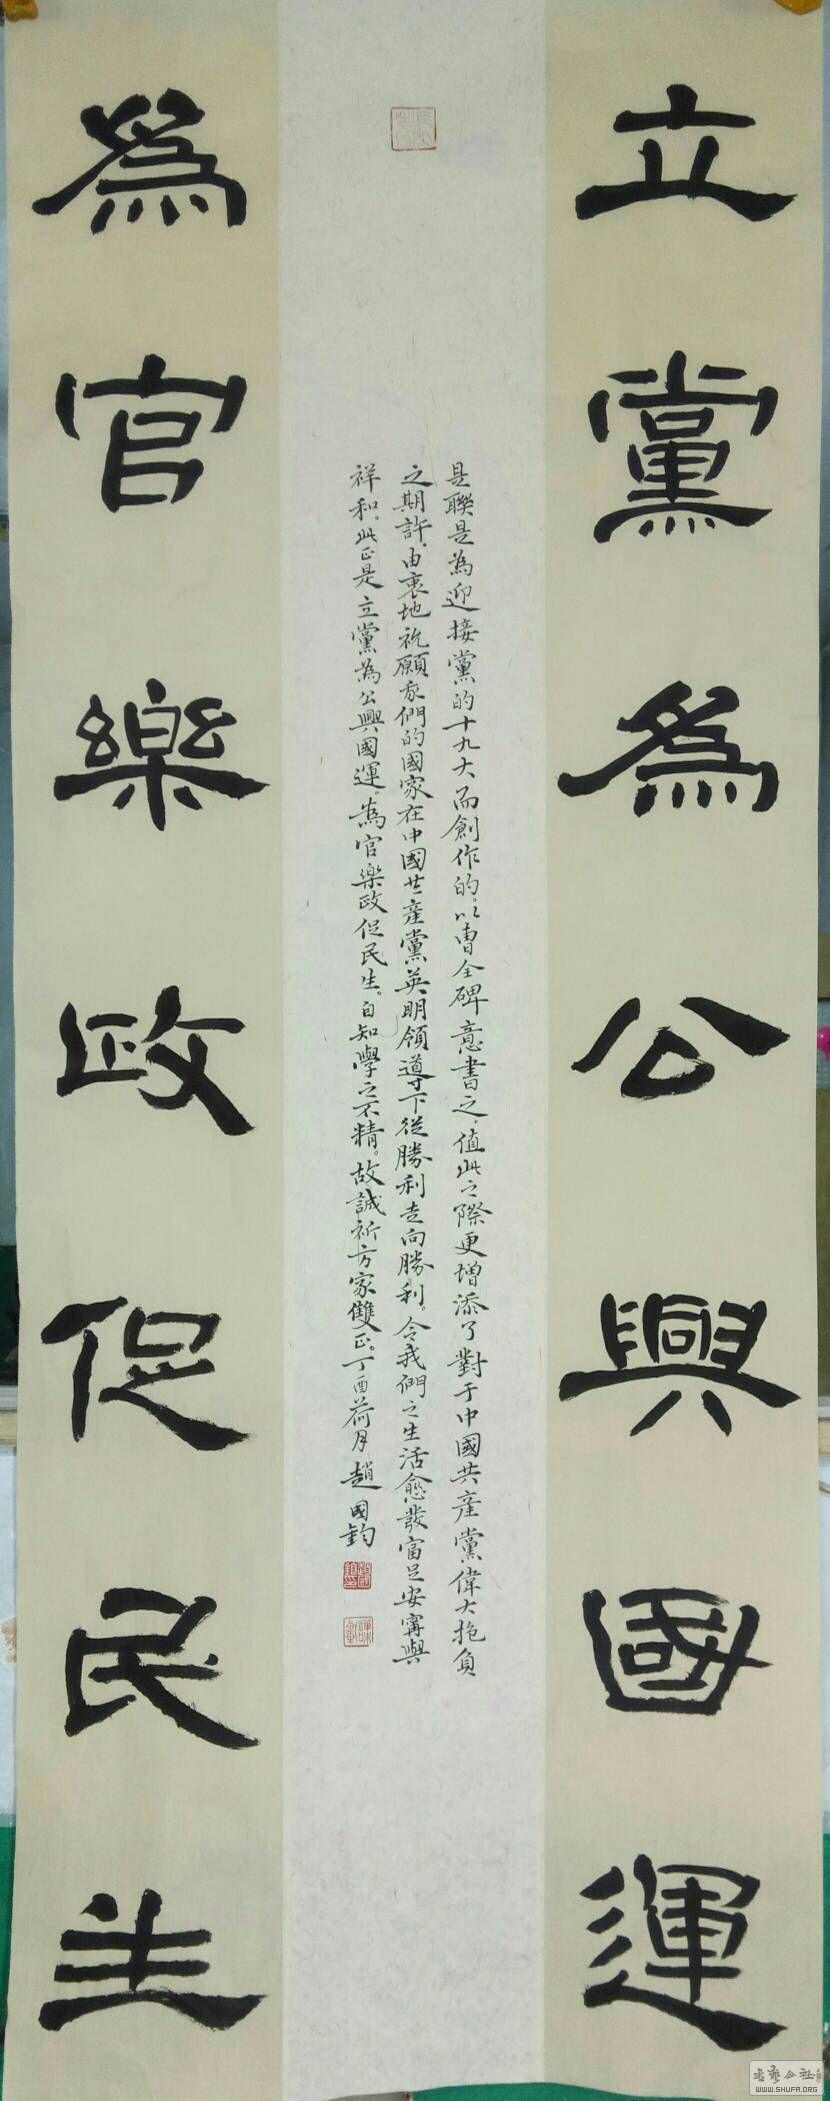 立黨爲公興國運
是聯是為迎接黨的十九大而創作的。以曹全碑意書之，值此之際更增添了對于中國共產黨偉大抱負
之期許，由衷地祝願我們的國家在中國共產黨英明領導下從勝利走向勝利。令我們之生活愈發富足安寧與
祥和。此正是立黨為公興國運。為官樂政促民生。自知學之不精。故誠祈方家雙正。丁酉荷月趙國鈞
爲官樂政促民生
書藝公社
WWW.SHUFA.ORG